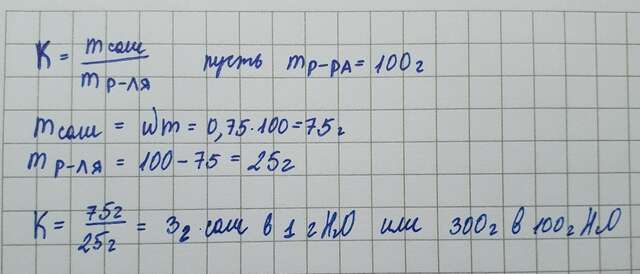 K = m соли / m р-ля пусть m р-ра = 100 г
m соли = Wm = 0,75·100 = 75 г
m р-ля = 100 - 75 = 25 г
K = 75 г / 25 г = 3 г соли в 1 г H2O или 300 г в 100 г H2O